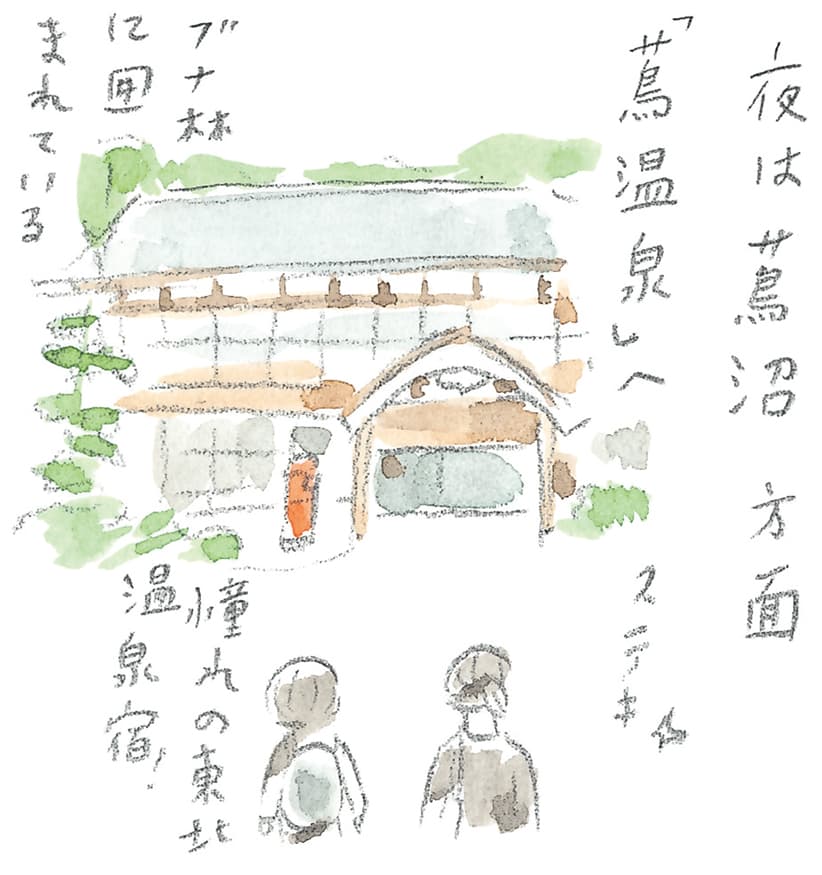 夜は蔦沼 方面
「蔦温泉」へ
ステキ☆
ブナ林
に囲
まれている
憧れの東北
温泉宿!